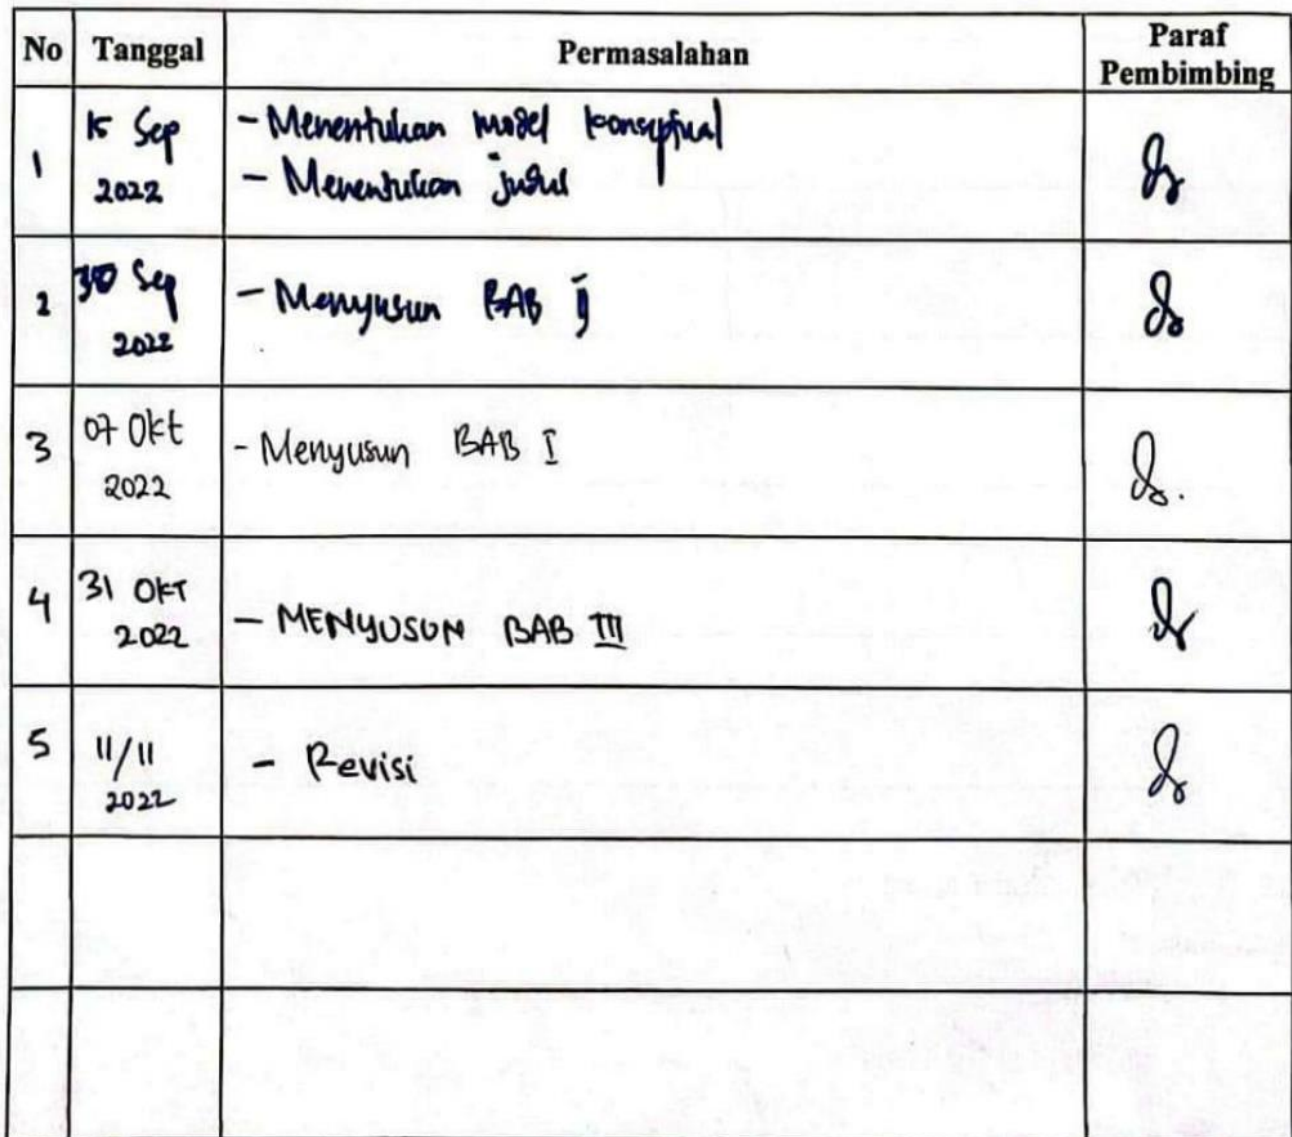 No Tanggal Permasalahan Paraf Pembimbing
1 15 Sep 2022 - Menentukan model konseptual
- Menentukan judul
2 30 Sep 2022 - Menyusun BAB II
3 07 Okt 2022 - Menyusun BAB I
4 31 OKT 2022 - MENYUSUN BAB III
5 11/11 2022 - Revisi